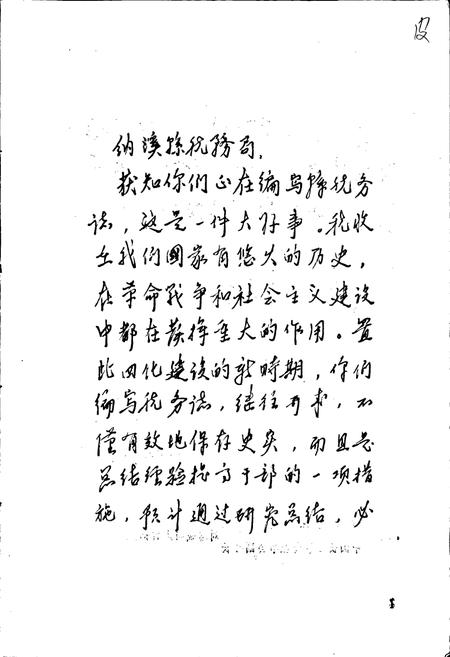 皮
纳溪县税务局,
获知你们正在编写县税务
志,这是一件大好事。税收
在我们国家有悠久的历史,
在革命战争和社会主义建设
中都在发挥重大的作用。置
此四化建设的新时期,你们
编写税务志,继往开来,不
仅有效地保存史实,而且是
总结经验提高干部的一项措
施,预计通过研究总结,必